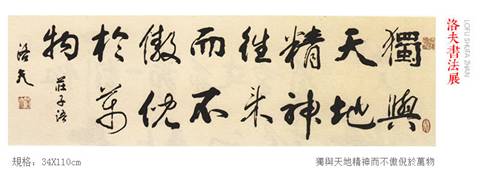 獨與
天地
精神
往来
而不
傲倪
於萬
物
莊子語
洛夫
洛夫書法展
LOFU SHUFA ZHAN
規格：34X110cm
獨與天地精神而不傲倪於萬物